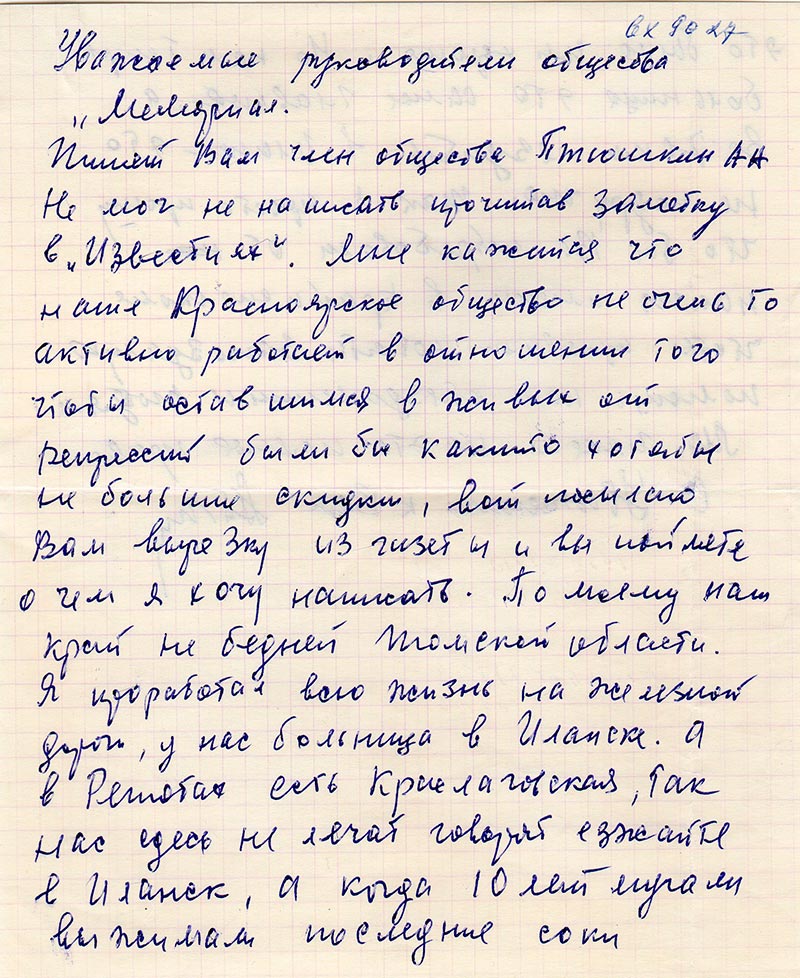 вх 9027
Уважаемые руководители общества
„Мемориал.
Пишет Вам член общества Птюшкин АА
Не мог не написать прочитав заметку
в „Известиях". Мне кажится что
наше Красноярское общество не очень то
активно работает в отношении того
чтобы оставшимся в живых от
репрессий были бы какито хотябы
не большие скидки, вот посылаю
Вам вырезку из газеты и вы поймете
о чем я хочу написать. По моему наш
край не бедней Томской области.
Я проработал всю жизнь на железной
дороги, у нас больница в Иланске. А
в Решотах есть Краслаговская, так
нас сдесь не лечат говорят езжайте
в Иланск, а когда 10 лет
выжимали последние соки